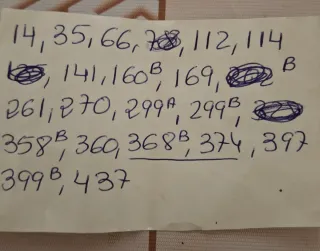 14, 35, 66, 112, 114
141, 160ᴮ, 169, ᴮ
261, 270, 299ᴬ, 299ᴮ,
358ᴮ, 360, 368ᴮ, 374, 397
399ᴮ, 437